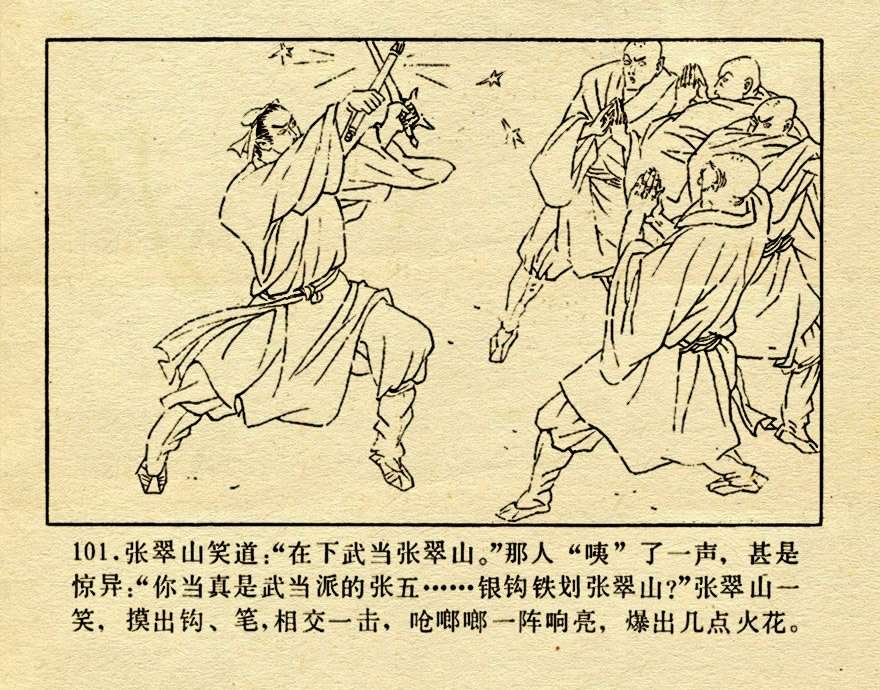 101.张翠山笑道：“在下武当张翠山。”那人“咦”了一声，甚是
惊异：“你当真是武当派的张五……银钩铁划张翠山？”张翠山一
笑，摸出钩、笔，相交一击，呛啷啷一阵响亮，爆出几点火花。